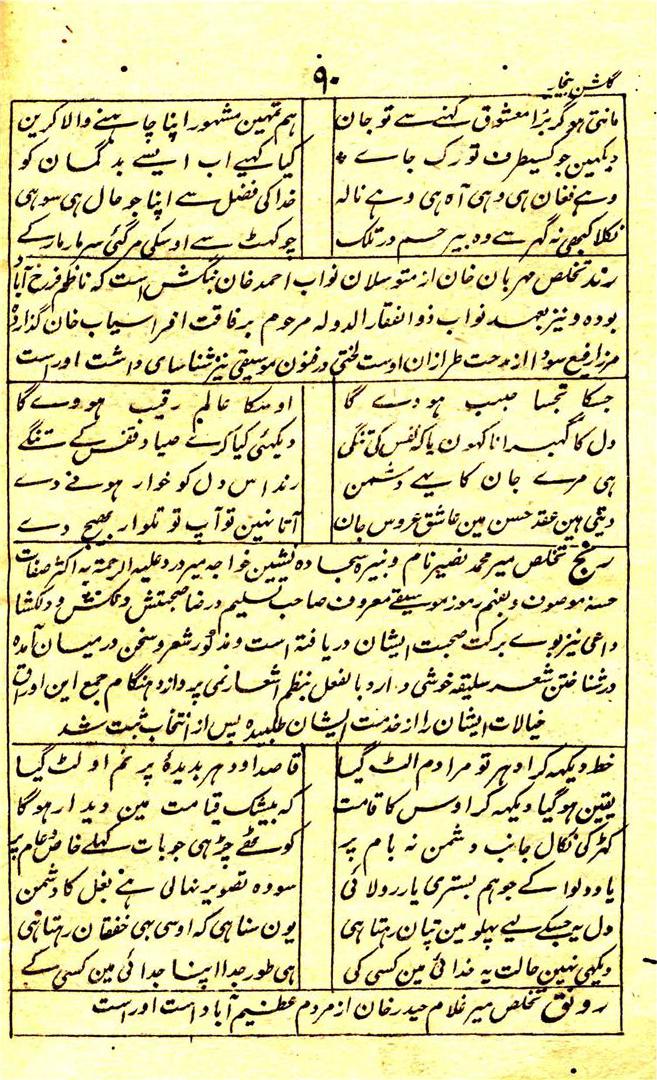 گلشن بیخار
۹۰
مانتی ہو گر بُرا معشوق کہنے سے تو جان ہم تمہین مشہور اپنا چاہنے والا کرین
دیکہین جو کسیطرف تو رک جاے کیا کہیے اب ایسے بدگمان کو
وہے فغان ہی وہی آہ ہی وہے نالہ خدا کی فضل سے اپنا جو حال ہی سو ہی
نکلا کبھی نہ گہر سے وہ بیرحم در تلک چوکہٹ سے اوسکی مر گئی سر مار مار کے
رند تخلص مہربان خان از متوسلان نواب احمد خان بنگش است کہ ناظم فرخ آباد
بودہ و نیز بعہد نواب ذوالفقار الدولہ مرحوم برفاقت افراسیاب خان گذاردہ
مرزا رفیع سودا از مدحت طرازان اوست لختی در فنون موسیقی نیز شناسای داشت اوراست
جسکا تجسا حبیب ہووے گا اوسکا عالم رقیب ہووے گا
دل کا گہبرانا کہون یا کہ قفس کی تنگی دیکہئی کیا کرے صیاد قفس کے تنگے
ہی مرے جان کا یہے دشمن رند اس دل کو خوار ہونے دے
دیتی ہین عقد حسن مین عاشق عروس جان آتا نہین تو آپ تو تلوار بھیج دے
رنج تخلص میر محمد نصیر نام و نبیرہ سجادہ نشین خواجہ میر درد علیہ الرحمۃ بہ اکثر صفات
حسنہ موصوف و بفہم رموز موسیقے معروف صاحب تسلیم و رضا صحبتش دلکش و دلکشا
داعی نیز بوے برکت صحبت ایشان دریافتہ است و مذکور شعر و سخن درمیان آمدہ
در شناختن شعر سلیقہ خوشی دارد بالفعل بنظم اشعار نمی پردازد ہنگام جمع این اوراق
خیالات ایشان را از خدمت ایشان طلبیدہ پس از انتخاب ثبت شد
خط دیکہہ کر اودہر تو مرا دم الٹ گیا قاصد اودہر بدیدۂ پر نم اولٹ گیا
یقین ہو گیا دیکہہ کر اوس کا قامت کہ بیشک قیامت مین دیدار ہو گا
کہڑکی نکال جانب دشمن نہ بام پر کوٹھے چڑہی جو بات کہلے خاص و عام پر
یا وہ لوا کے جو ہم بستری یار رولائی سو وہ تصویر نہالی ہے بغل کا دشمن
دل یہ جسکے لیے پہلو مین تپان رہتا ہی یون سنا ہی کہ اوسی بہی خفقان رہتا ہی
دیکہی نہین حالت یہ خدائی مین کسی کی ہی طور جدا اپنا جدائی مین کسی کے
رونق تخلص میر غلام حیدر خان از مردم عظیم آباد است اوراست